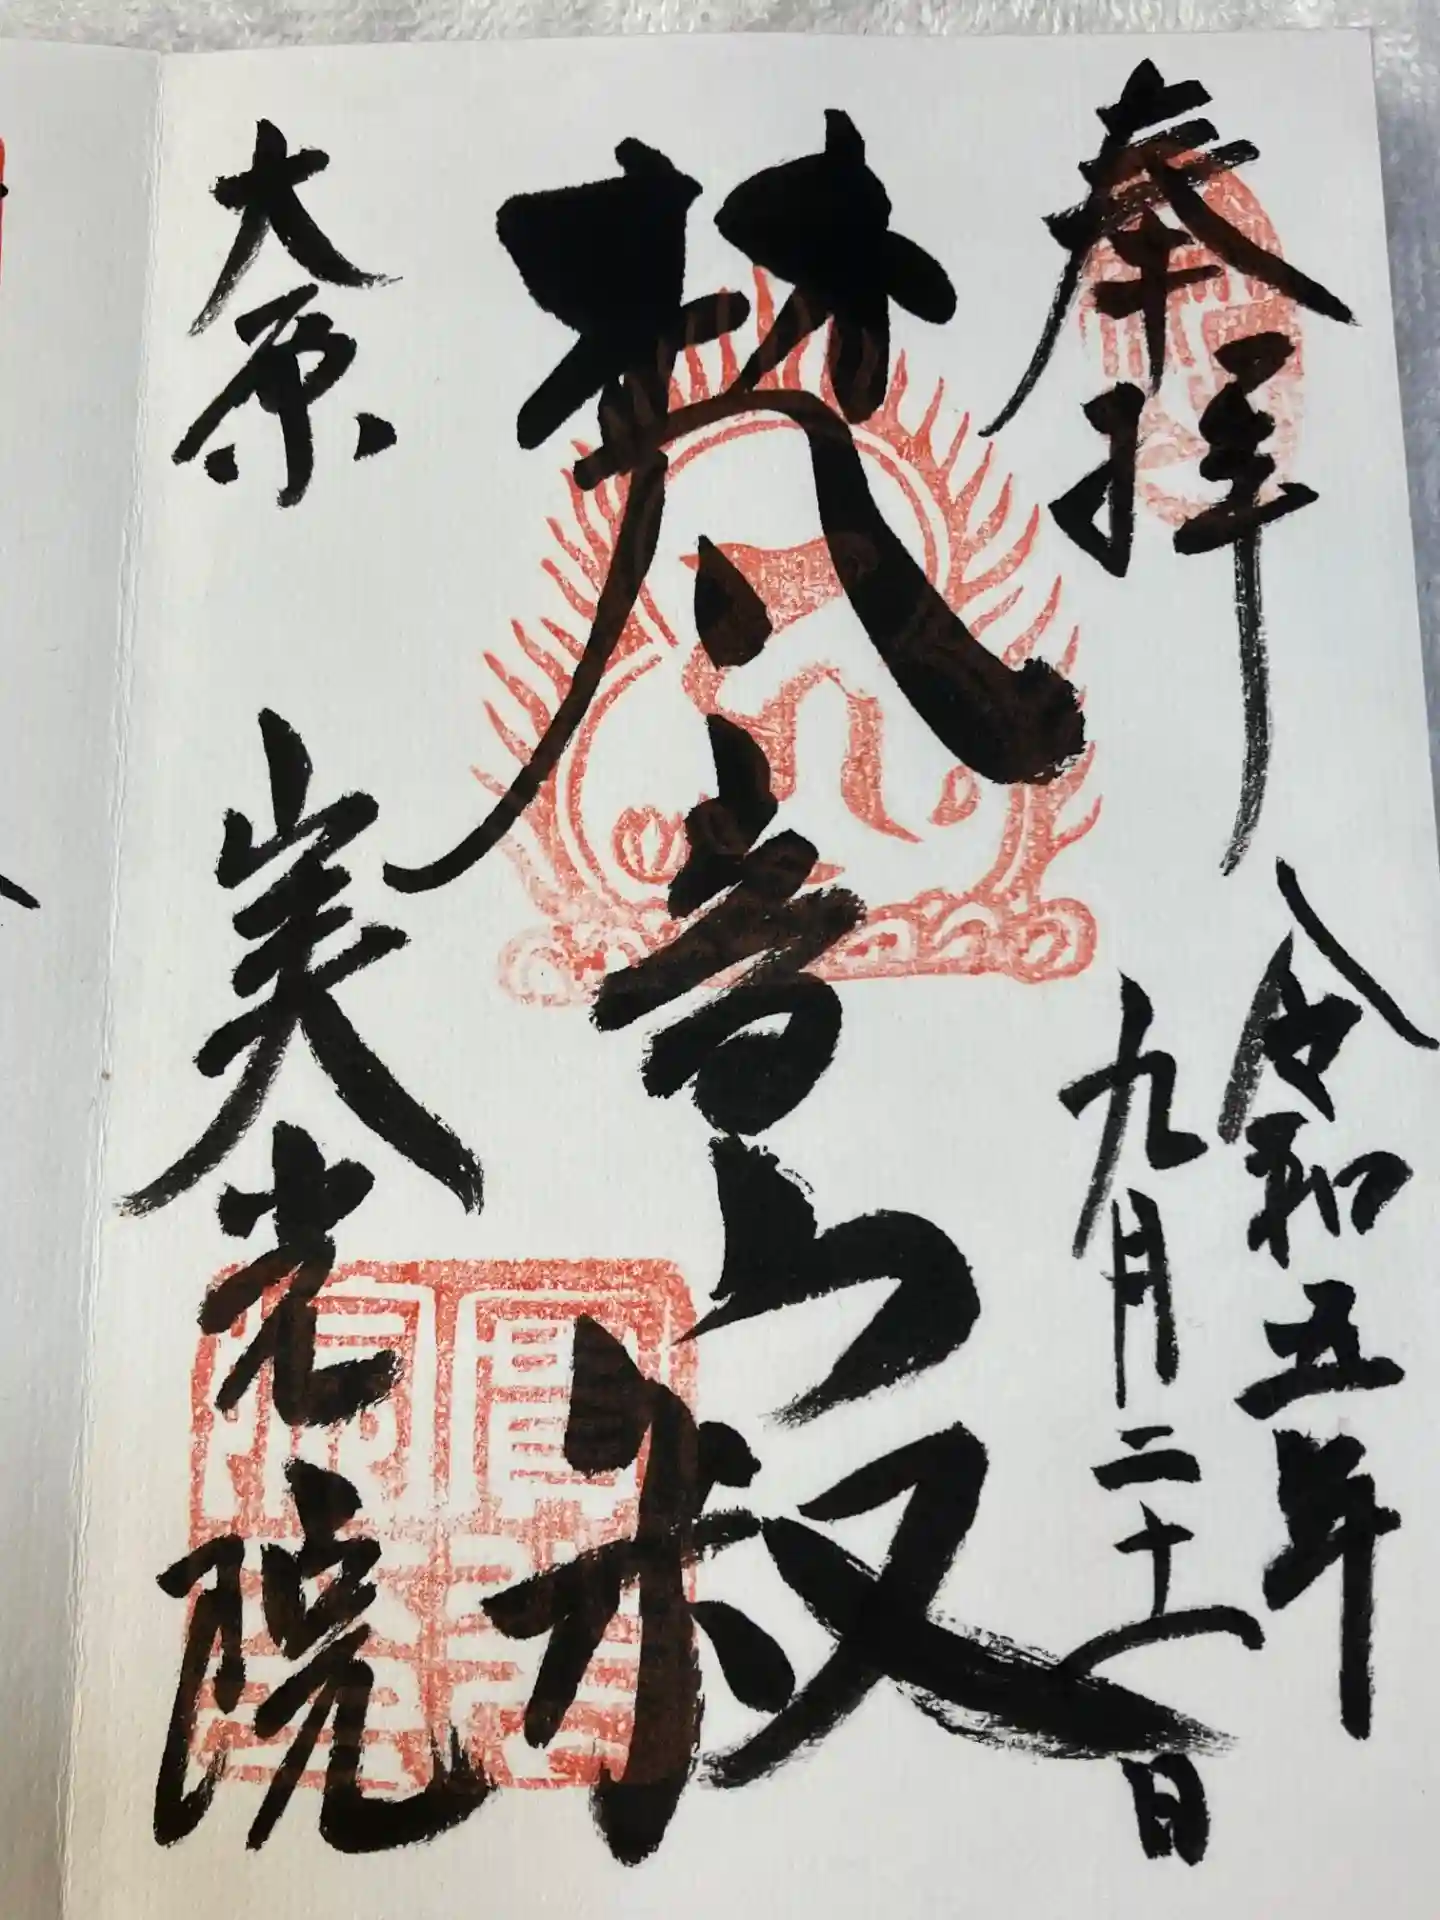 奉拝
令和五年
九月二十一日
梵音寂
大原 実光院